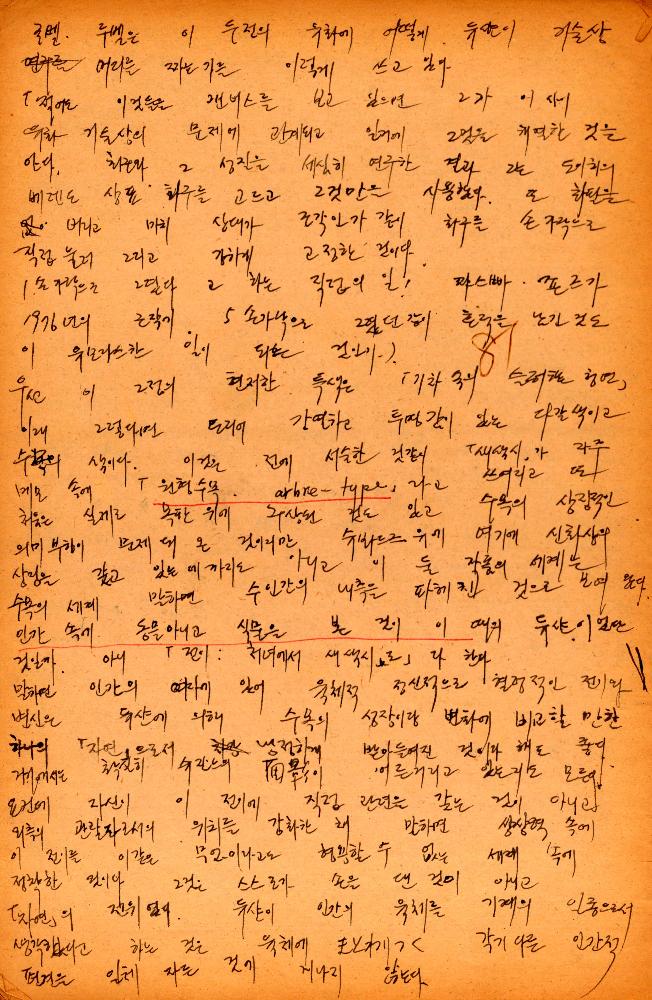 로벨. 루벨은 이 두전의 유화에 어떻게 뒤샹이 기술상
머리를 짜는가를 이렇게 쓰고 있다
「적어도 이것들을 캔버스를 보고 있으면 그가 이 사이
유화 기술상의 문제에 관계되고 일거에 그것을 해결한 것을
안다. 그 성질을 세심히 연구한 결과 그는 도이치의
베렌도 상표 화구를 고르고 그것만을 사용했다. 또 화판을
없이 버리고 마치 상대가 조각인가 같이 화구를 손가락으로
직접 눌러 그리고 강하게 고정한 것이다
(손가락으로 그렸다고 하는 직접의 일! 쟈스빠·죤즈가
1976년의 근작에 5 손가락으로 그렸던 같이 흔적을 남긴 것도
이 유모러스한 일이 되는 것인가.)
87
우선 이 2점의 현저한 특색은 「기차 속의 슬퍼하는 청년」
이래 그렇다면 도리어 간연하고 투명감이 있는 다갈색이고
수목의 색이다. 이것은 전에 서술한 것같이 「새색시」가 자주
메모 속에 「원형수목. arbre-type」라고 쓰여지고 또
처음은 실제로 목판 위에 구상된 것도 있고 수목의 상징적인
의미 부하이 문제 되 온 것이지만 뒤샹으로 위에 여기에 신화상의
상징을 갖고 있는 데까지도 아니고 이 둘 작품의 세계는
수목의 세계 말하면 수인간의 내측을 파헤친 것으로 보여 온다.
인간 속에 동물 아니고 식물을 본 것이 이 때의 뒤샹이었던
것일까. 아니 「전이: 처녀에서 새색시」로」라 한다
말하면 인간의 여자에 있어 육체적 정신적으로 결정적인 전기와
변신은 뒤샹에 의해 수목의 성장이랑 변화에 비교할 만한
하나의 「자연」으로서 냉정하게 받아들여진 것이라 해도 좋다
거기에서는 확실히 이 어른거리고 있는지도 모른다
요컨대 자신이 이 전이에 직접 관련은 갖는 것이 아니고
외측의 관람자로서의 위치를 강화한 채 말하면 상상력 속에
이 전이를 이같은 무언이나고도 형용할 수 없는 세계 속에
정착한 것이다 그것은 스스로가 손을 댄 것이 아니고
「자연」의 전위였다. 뒤샹이 인간의 육체를 기계의 일종으로서
생각했다고 하는 것은 육체에 각기 다른 인간적
편견을 일체 자른 것에 지나지 않는다.